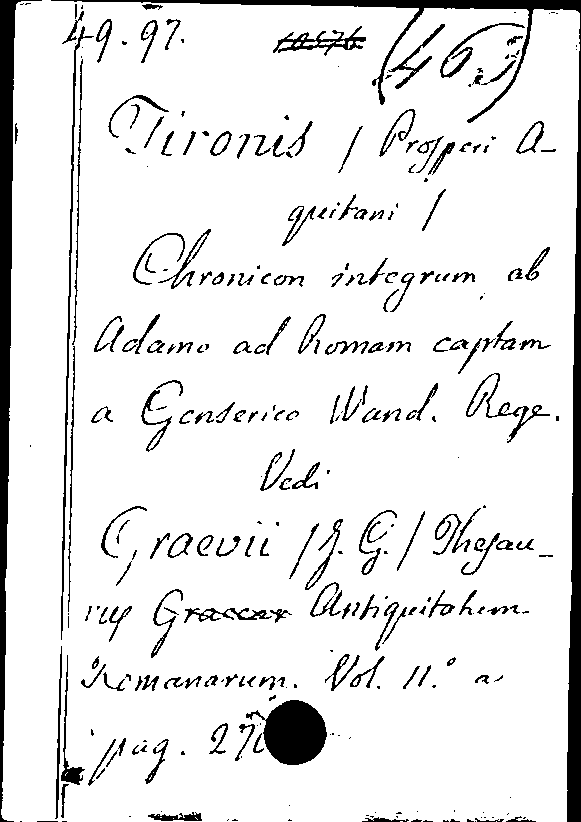 49.97. 10576
Tironis / Prosperi A-
quitani /
Chronicon integrum ab
Adamo ad Romam captam
a Genserico Wand. Rege.
Vedi
Graevii / J. G. / Thesau-
rus Graecar Antiquitatum
Romanarum. Vol. 11.° a
pag.